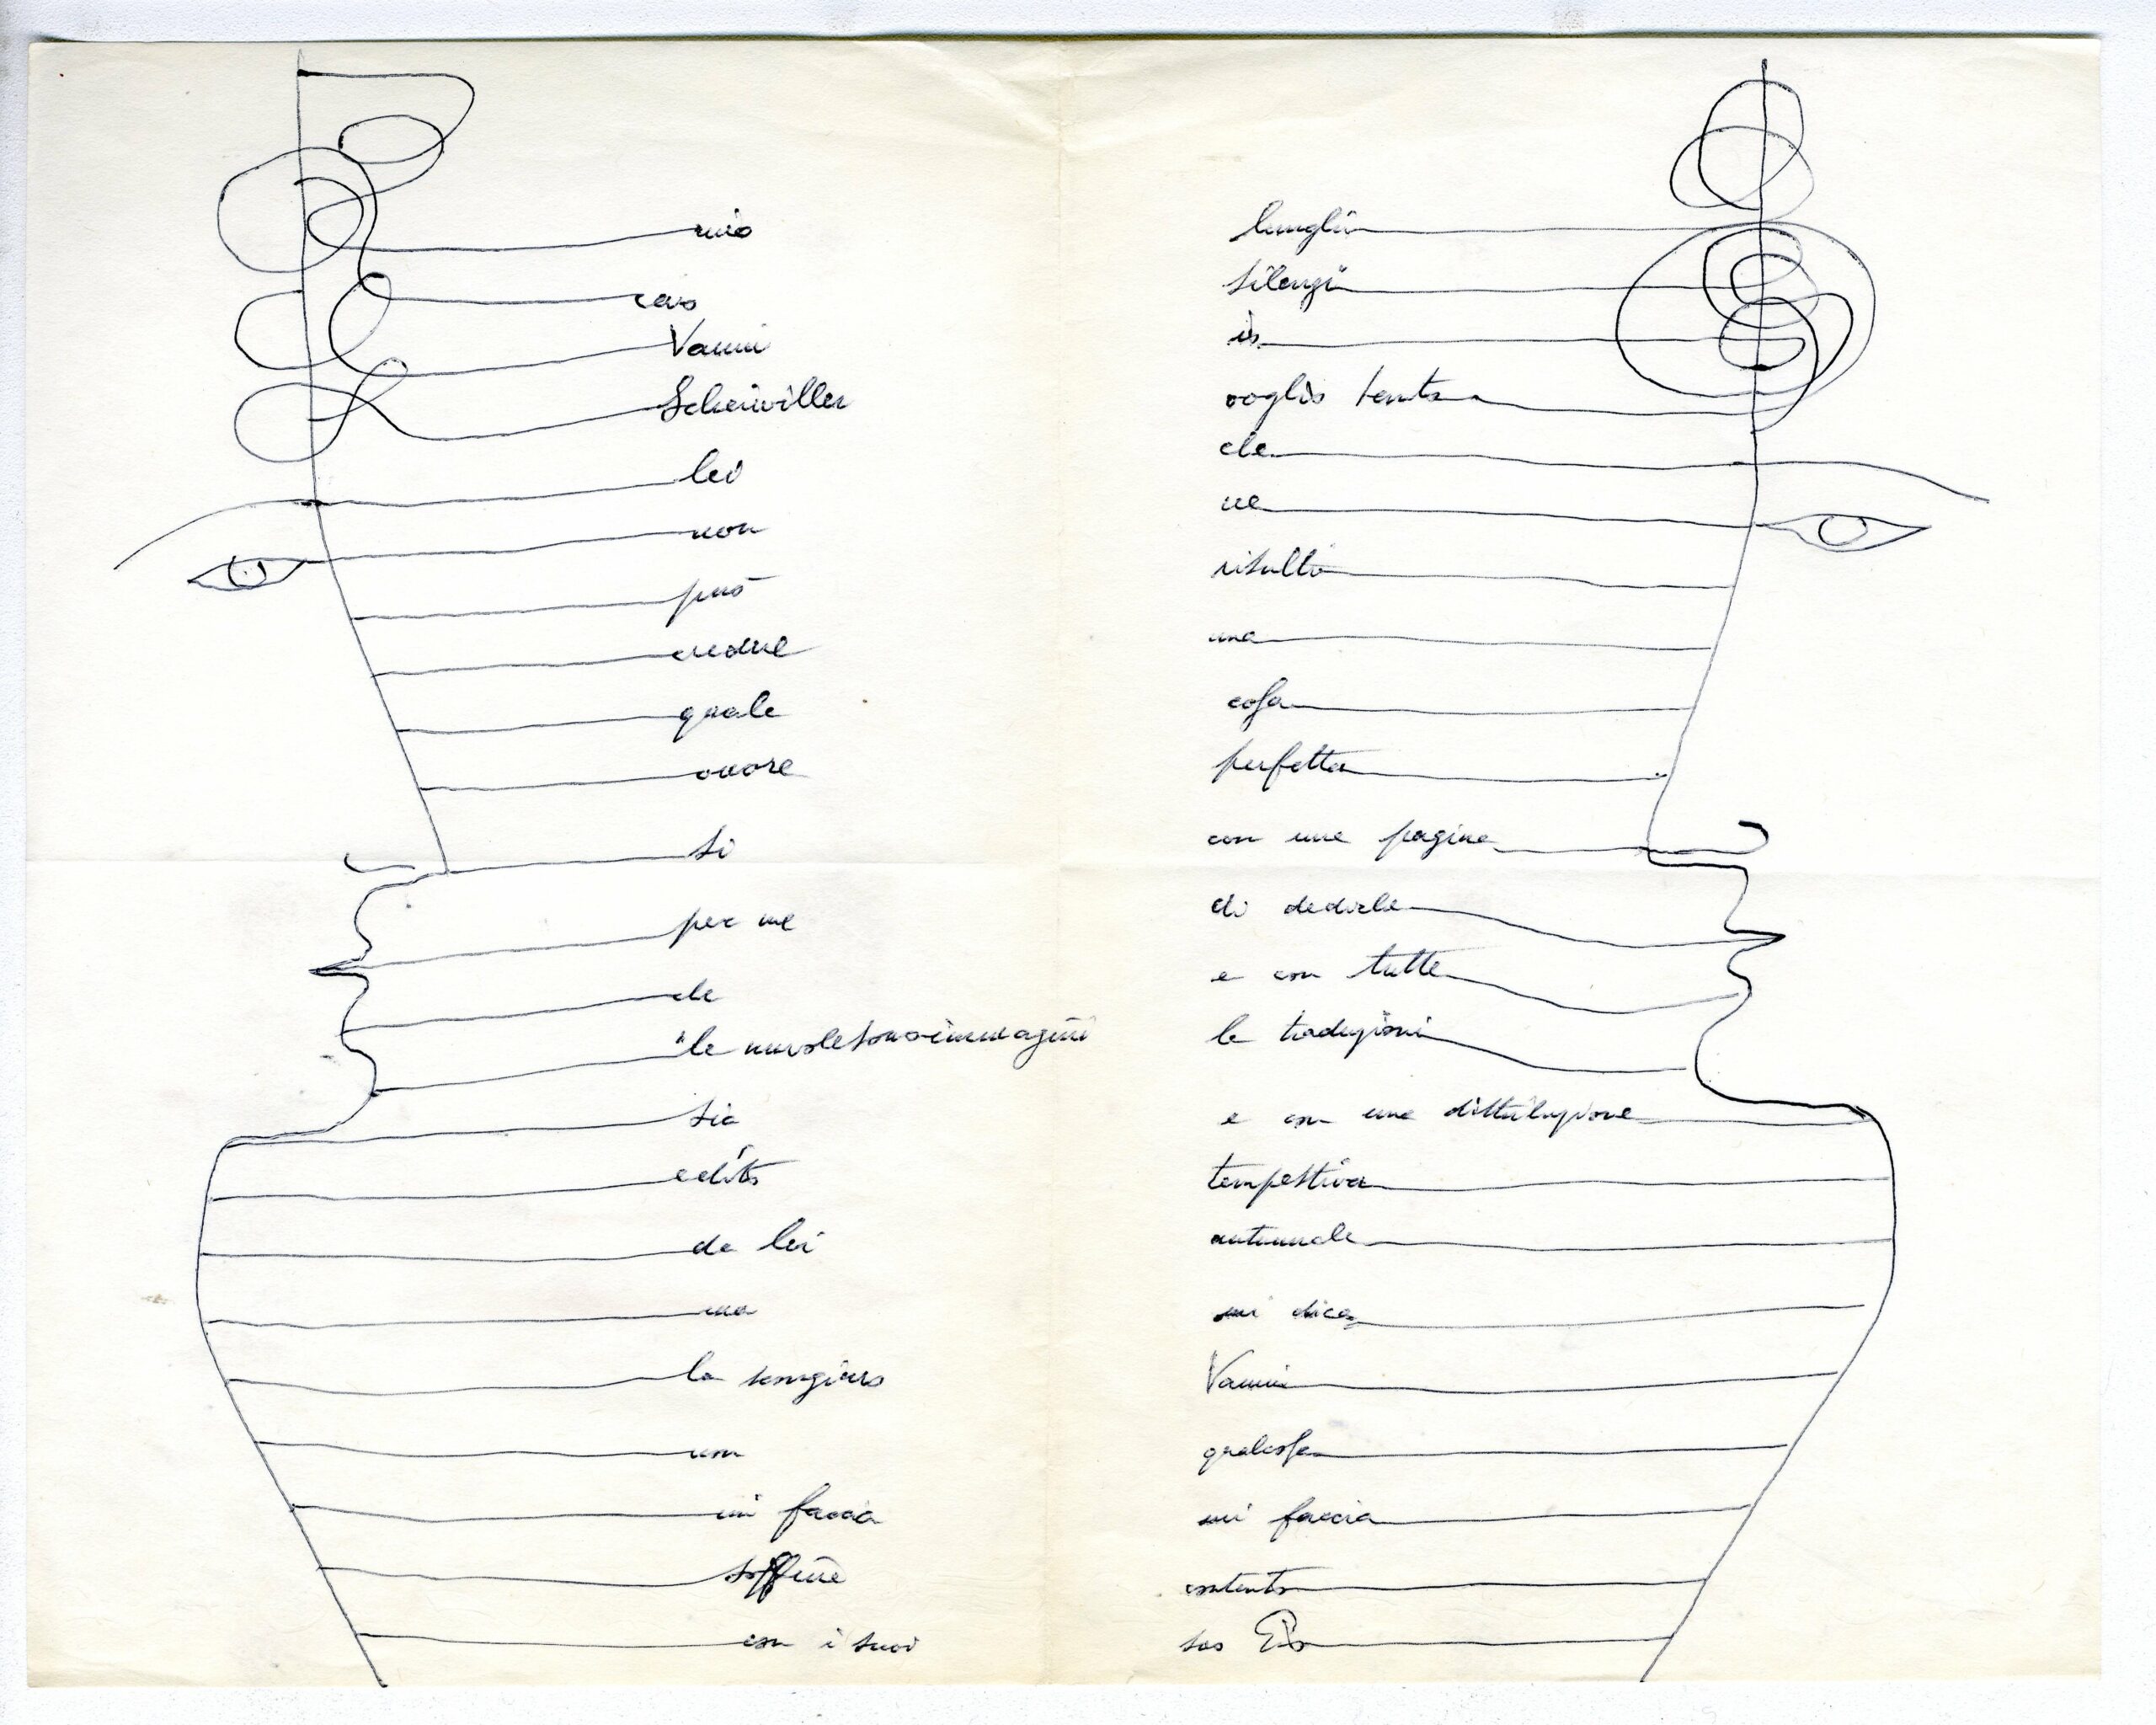 mio
caro
Vanni
Scheiwiller
lei
non
può
credere
quale
onore
si
per me
che
"le nuvole sono immagini"
sia
edito
da lei
ma
la scongiuro
non
mi faccia
soffrire
con i suoi
lunghi
silenzi
io
voglio tanto
che
ne
risulti
una
cosa
perfetta
con una pagina
di dediche
e con tutte
le traduzioni
e con una distribuzione
tempestiva
autunnale
mi dica
Vanni
qualcosa
mi faccia
contento
suo